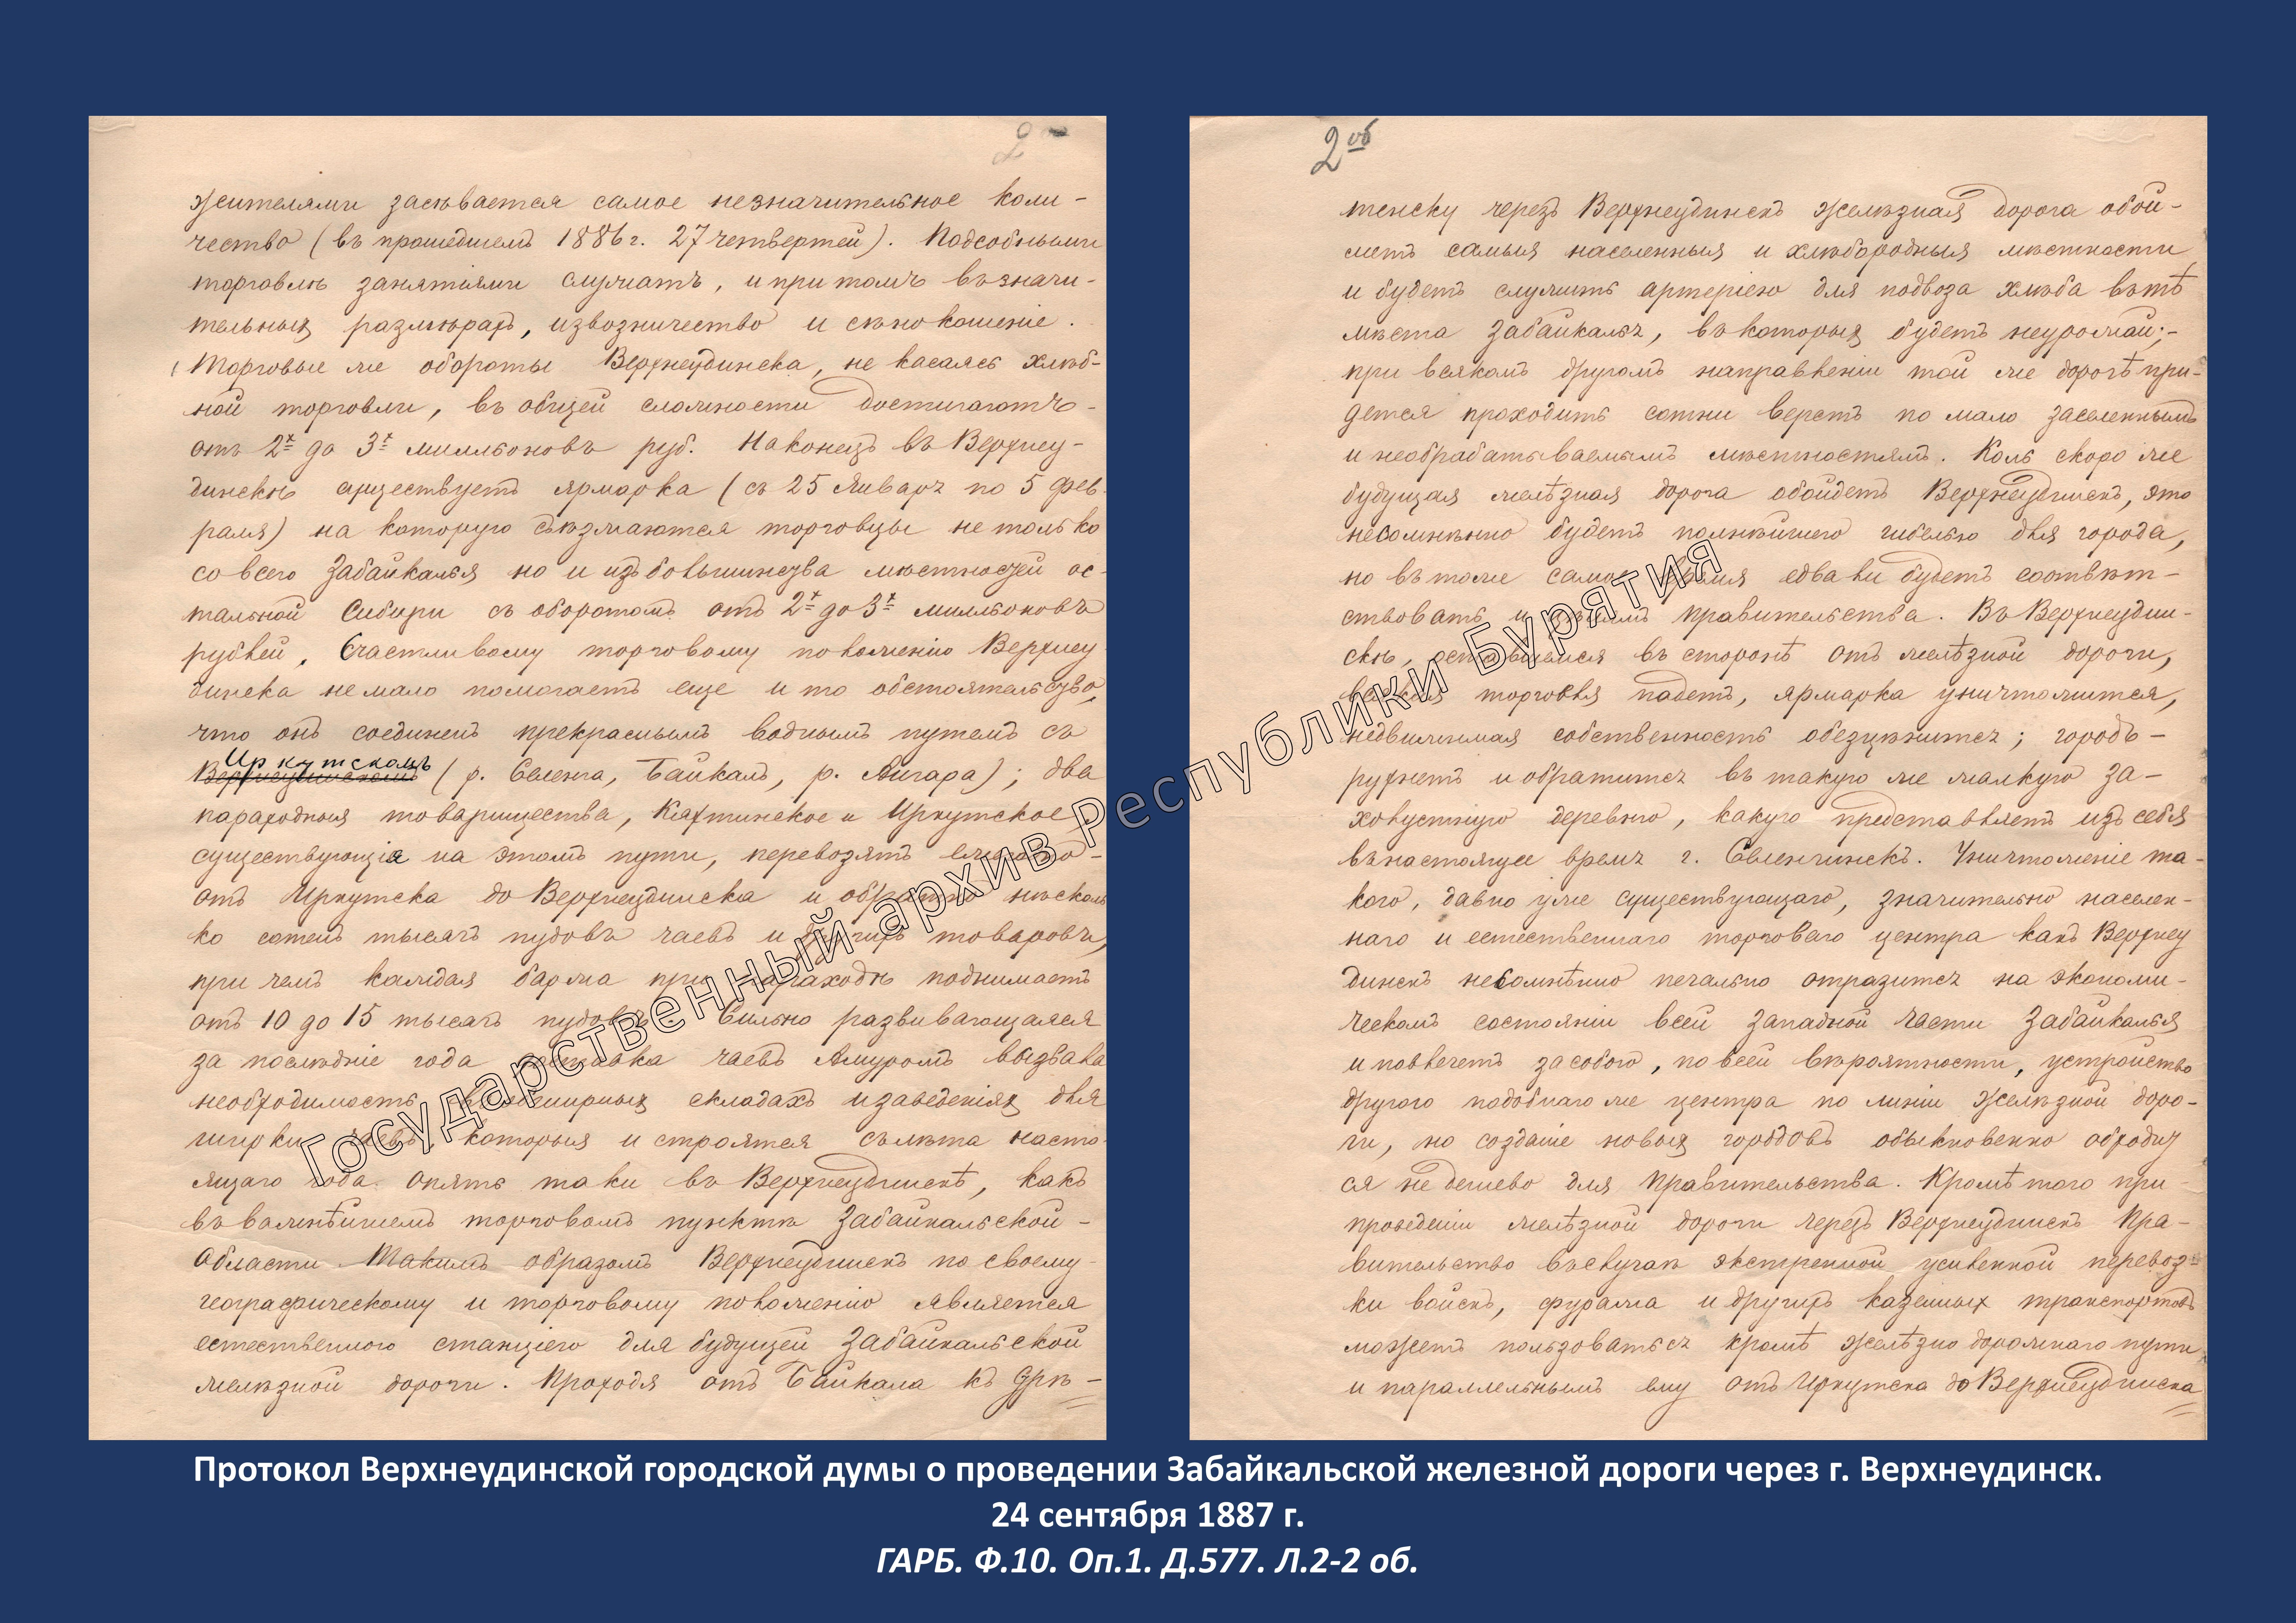 2
жителями засѣвается самое незначительное коли-
чество (въ прошедшемъ 1886 г. 27 четвертей). Подсобными
торговлѣ занятіями служатъ, и при томъ въ значи-
тельныхъ размѣрахъ, извозничество и сѣнокошеніе.
Торговые же обороты Верхнеудинска, не касаясь хлѣб-
ной торговли, въ общей сложности достигаютъ-
отъ 2х до 3х милльоновъ руб. Наконецъ въ Верхнеу-
динскѣ существуетъ ярмарка (съ 25 Января по 5 фев-
раля) на которую съѣзжаются торговцы не только
со всего Забайкалья но и изъ большинства мѣстностей ос-
тальной Сибири съ оборотомъ отъ 2х до 3х милльоновъ
рублей. Счастливому торговому положенію Верхнеу-
динска не мало помогаетъ еще и то обстоятельство,
что онъ соединенъ прекраснымъ воднымъ путемъ съ
Иркутскомъ
Верхнеудинскомъ (р. Селенга, Байкалъ, р. Ангара); два
пароходныя товарищества, Кяхтинское и Иркутское,
существующія на этомъ пути, перевозятъ ежегодно-
отъ Иркутска до Верхнеудинска и обратно нѣсколь
ко сотенъ тысячъ пудовъ чаевъ и другихъ товаровъ,
при чемъ каждая баржа при пароходѣ поднимаетъ
отъ 10 до 15 тысячъ пудовъ. Сильно развивающаяся
за послѣдніе года доставка чаевъ Амуромъ вызвала
необходимость въ обширныхъ складахъ и заведеніяхъ для
ширки чаевъ, которыя и строятся съ лѣта насто-
ящаго года опять таки въ Верхнеудинскѣ, какъ
въ важнѣйшемъ торговомъ пунктѣ Забайкальской-
Области. Такимъ образомъ Верхнеудинскъ по своему-
географическому и торговому положенію является
естественною станціею для будущей Забайкальской
желѣзной дороги. Проходя отъ Байкала къ Срѣ-
2 об
тенску черезъ Верхнеудинскъ желѣзная дорога обой-
метъ самыя населенныя и хлѣбородныя мѣстности
и будетъ служить артеріею для подвоза хлѣба въ тѣ
мѣста Забайкалья, въ которыхъ будетъ неурожай;-
при всякомъ другомъ направленіи той же дорогѣ при-
дется проходить сотни верстъ по мало заселеннымъ
и необрабатываемымъ мѣстностямъ. Коль скоро же
будущая желѣзная дорога обойдетъ Верхнеудинскъ, это
несомнѣнно будетъ полнѣйшею гибелью для города,
но въ тоже самое время едва ли будетъ соотвѣт-
ствовать и цѣлямъ правительства. Въ Верхнеудин-
скѣ, оставшемся въ сторонѣ отъ желѣзной дороги,
всякая торговля падетъ, ярмарка уничтожится,
недвижимая собственность обезцѣнится; городъ-
рухнетъ и обратится въ такую же жалкую за-
холустную деревню, какую представляетъ изъ себя
въ настоящее время г. Селенгинскъ. Уничтоженіе та-
кого, давно уже существующаго, значительно населен-
наго и естественнаго торговаго центра какъ Верхнеу
динскъ несомнѣнно печально отразится на экономи-
ческомъ состояніи всей западной части Забайкалья
и повлечетъ за собою, по всей вѣроятности, устройство
другого подобнаго же центра по линіи желѣзной доро-
ги, но созданіе новыхъ городовъ обыкновенно обходит
ся не дешево для Правительства. Кромѣ того при-
проведеніи желѣзной дороги черезъ Верхнеудинскъ Пра-
вительство въ случаѣ экстренной усиленной перевоз-
ки войскъ, фуража и другихъ казенныхъ транспортовъ
можетъ пользоваться кромѣ желѣзно дорожнаго пути
и параллельнымъ ему отъ Иркутска до Верхнеудинска
Государственный архив Республики Бурятия
Протокол Верхнеудинской городской думы о проведении Забайкальской железной дороги через г. Верхнеудинск.
24 сентября 1887 г.
ГАРБ. Ф.10. Оп.1. Д.577. Л.2-2 об.